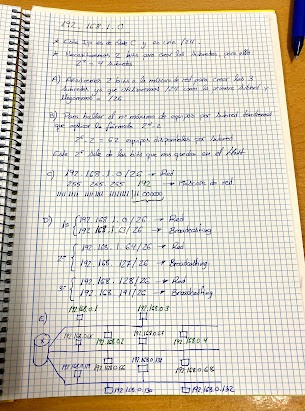 192.168.1.0
* Esta Ip es de clase C y es una /24
* Necesitaremos 2 bits para crear las subredes, para ello
2² = 4 subredes
A) Añadiremos 2 bits a la máscara de red para crear las 3
subredes, ya que utilizaremos /24 como la primera subred y
llegaremos a /26
B) Para hallar el nº máximo de equipos por subred tendremos
que aplicar la fórmula 2ⁿ-2
2⁶-2 = 62 equipos disponibles por subred
Este 2⁶ sale de los bits que nos quedan en el Host
C) 192.168.1.0/26 → Red
255.255.255.192 → Máscara de red
D) 1ª 192.168.1.0/26 → Red
192.168.1.63/26 → Broadcasting
2ª 192.168.1.64/26 → Red
192.168.127/26 → Broadcasting
3ª 192.168.128/26 → Red
192.168.191/26 → Broadcasting
E)
192.168.0.1 192.168.0.3
192.168.0.2 192.168.0.4
192.168.0.66
192.168.0.130 192.168.0.132